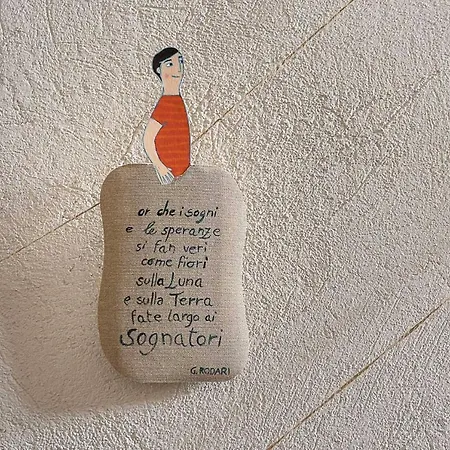 or che i sogni
e le speranze
si fan veri
come fiori
sulla Luna
e sulla Terra
fate largo ai
Sognatori
G. RODARI